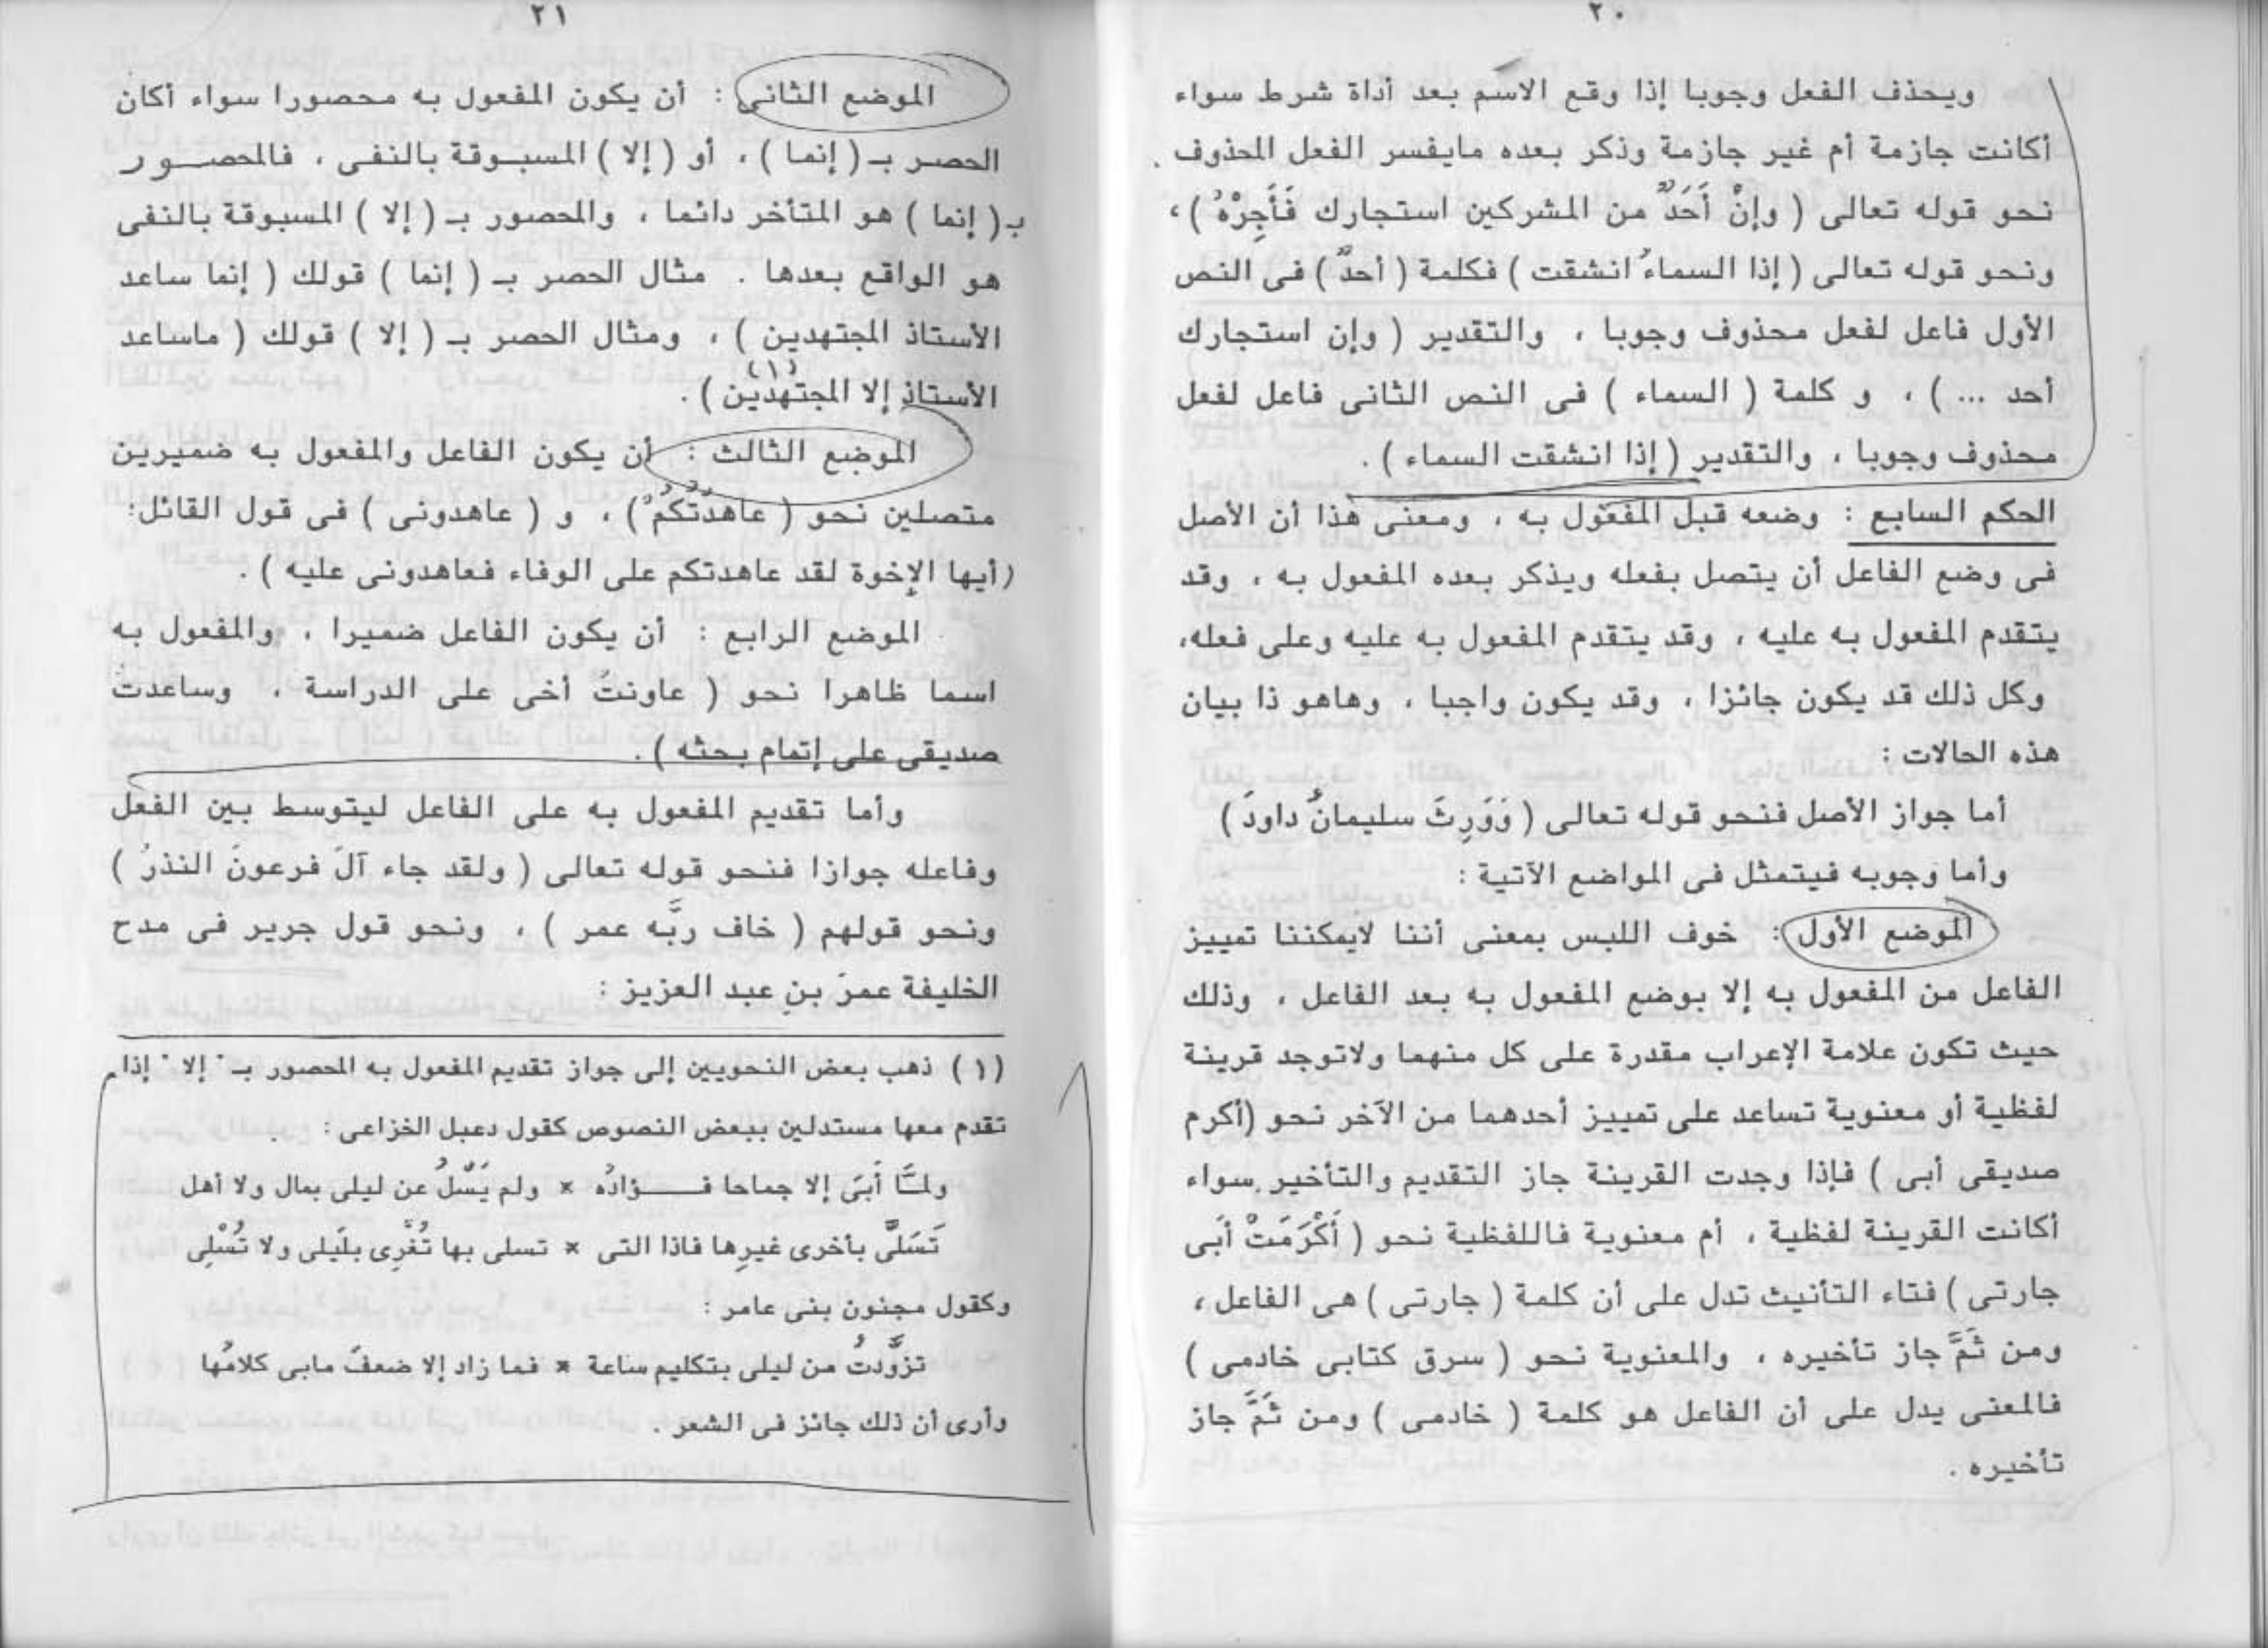 ٢٠
ويحذف الفعل وجوبا إذا وقع الاسم بعد أداة شرط سواء
أكانت جازمة أم غير جازمة وذكر بعده مايفسر الفعل المحذوف .
نحو قوله تعالى ( وإنْ أَحَدٌ من المشركين استجارك فَأَجِرْهُ ) ،
ونحو قوله تعالى ( إذا السماءُ انشقت ) فكلمة ( أحدٌ ) فى النص
الأول فاعل لفعل محذوف وجوبا ، والتقدير ( وإن استجارك
أحد ... ) ، و كلمة ( السماء ) فى النص الثانى فاعل لفعل
محذوف وجوبا ، والتقدير ( إذا انشقت السماء ) .
الحكم السابع : وضعه قبل المفعول به ، ومعنى هذا أن الأصل
فى وضع الفاعل أن يتصل بفعله ويذكر بعده المفعول به ، وقد
يتقدم المفعول به عليه ، وقد يتقدم المفعول به عليه وعلى فعله،
وكل ذلك قد يكون جائزا ، وقد يكون واجبا ، وهاهو ذا بيان
هذه الحالات :
أما جواز الأصل فنحو قوله تعالى ( وَوَرِثَ سليمانُ داودَ )
وأما وجوبه فيتمثل فى المواضع الآتية :
الموضع الأول : خوف اللبس بمعنى أننا لايمكننا تمييز
الفاعل من المفعول به إلا بوضع المفعول به بعد الفاعل ، وذلك
حيث تكون علامة الإعراب مقدرة على كل منهما ولاتوجد قرينة
لفظية أو معنوية تساعد على تمييز أحدهما من الآخر نحو (أكرم
صديقى أبى ) فإذا وجدت القرينة جاز التقديم والتأخير سواء
أكانت القرينة لفظية ، أم معنوية فاللفظية نحو ( أَكْرَمَتْ أَبى
جارتى ) فتاء التأنيث تدل على أن كلمة ( جارتى ) هى الفاعل ،
ومن ثَمَّ جاز تأخيره ، والمعنوية نحو ( سرق كتابى خادمى )
فالمعنى يدل على أن الفاعل هو كلمة ( خادمى ) ومن ثَمَّ جاز
تأخيره .
٢١
الموضع الثانى : أن يكون المفعول به محصورا سواء أكان
الحصر بـ ( إنما ) ، أو ( إلا ) المسبوقة بالنفى ، فالمحصور
بـ ( إنما ) هو المتأخر دائما ، والمحصور بـ ( إلا ) المسبوقة بالنفى
هو الواقع بعدها . مثال الحصر بـ ( إنما ) قولك ( إنما ساعد
الأستاذ المجتهدين ) ، ومثال الحصر بـ ( إلا ) قولك ( ماساعد
الأستاذ إلا المجتهدين ) (١) .
الموضع الثالث : أن يكون الفاعل والمفعول به ضميرين
متصلين نحو ( عاهدتُكُمْ ) ، و ( عاهدونى ) فى قول القائل:
(أيها الإخوة لقد عاهدتكم على الوفاء فعاهدونى عليه ) .
الموضع الرابع : أن يكون الفاعل ضميرا ، والمفعول به
اسما ظاهرا نحو ( عاونتُ أخى على الدراسة ، وساعدت
صديقى على إتمام بحثه ) .
وأما تقديم المفعول به على الفاعل ليتوسط بين الفعل
وفاعله جوازا فنحو قوله تعالى ( ولقد جاء آلَ فرعونَ النذرُ )
ونحو قولهم ( خاف ربَّه عمر ) ، ونحو قول جرير فى مدح
الخليفة عمرَ بنِ عبد العزيز :
(١) ذهب بعض النحويين إلى جواز تقديم المفعول به المحصور بـ " إلا " إذا
تقدم معها مستدلين ببعض النصوص كقول دعبل الخزاعى :
ولمَّا أَبَى إلا جماحا فـــؤادُه * ولم يَسْلُ عن ليلى بمال ولا أهل
تَسَلَّى بأخرى غيرِها فاذا التى * تسلى بها تُغْرِى بلَيلى ولا تُسْلِى
وكقول مجنون بنى عامر :
تزوَّدتُ من ليلى بتكليم ساعة * فما زاد إلا ضعفَ مابى كلامُها
وأرى أن ذلك جائز فى الشعر .